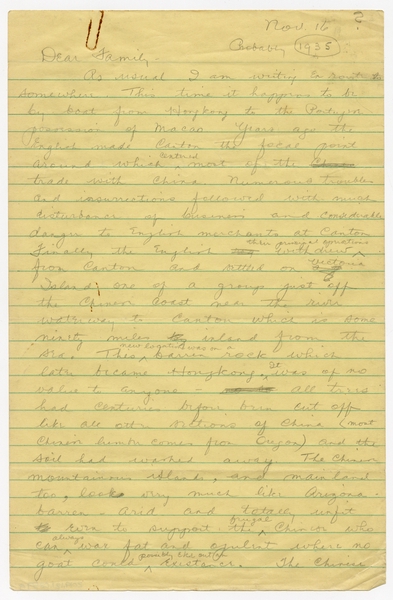 Nov. 16 ?
Probably 1935
Dear Family -
As usual I am writing en route to
somewhere. This time it happens to be
by boat from Hongkong to the Portugese
possession of Macao. Years ago the
English made Canton the focal point
around which centered most of the
trade with China. Numerous troubles
and insurrections followed with much
disturbance of business and considerable
danger to English merchants at Canton
Finally the English withdrew their principal operations
from Canton and settled on Victoria
Island; one of a group just off
the Chinese Coast near the river
waterway to Canton which is some
ninety miles island from the
sea. This new location was on a barren rock which
later became Hongkong. It was of no
value to anyone all trees
had centuries before been cut off
like all other sections of China (most
Chinese lumber comes from Oregon) and the
soil had washed away. The Chinese
mountainous islands, and mainland
too, look very much like Arizona -
barren - arid and totally unfit
to even to support the frugal Chinese who
can always wax fat and opulent where no
goat could possibly eke out an existance. The Chinese